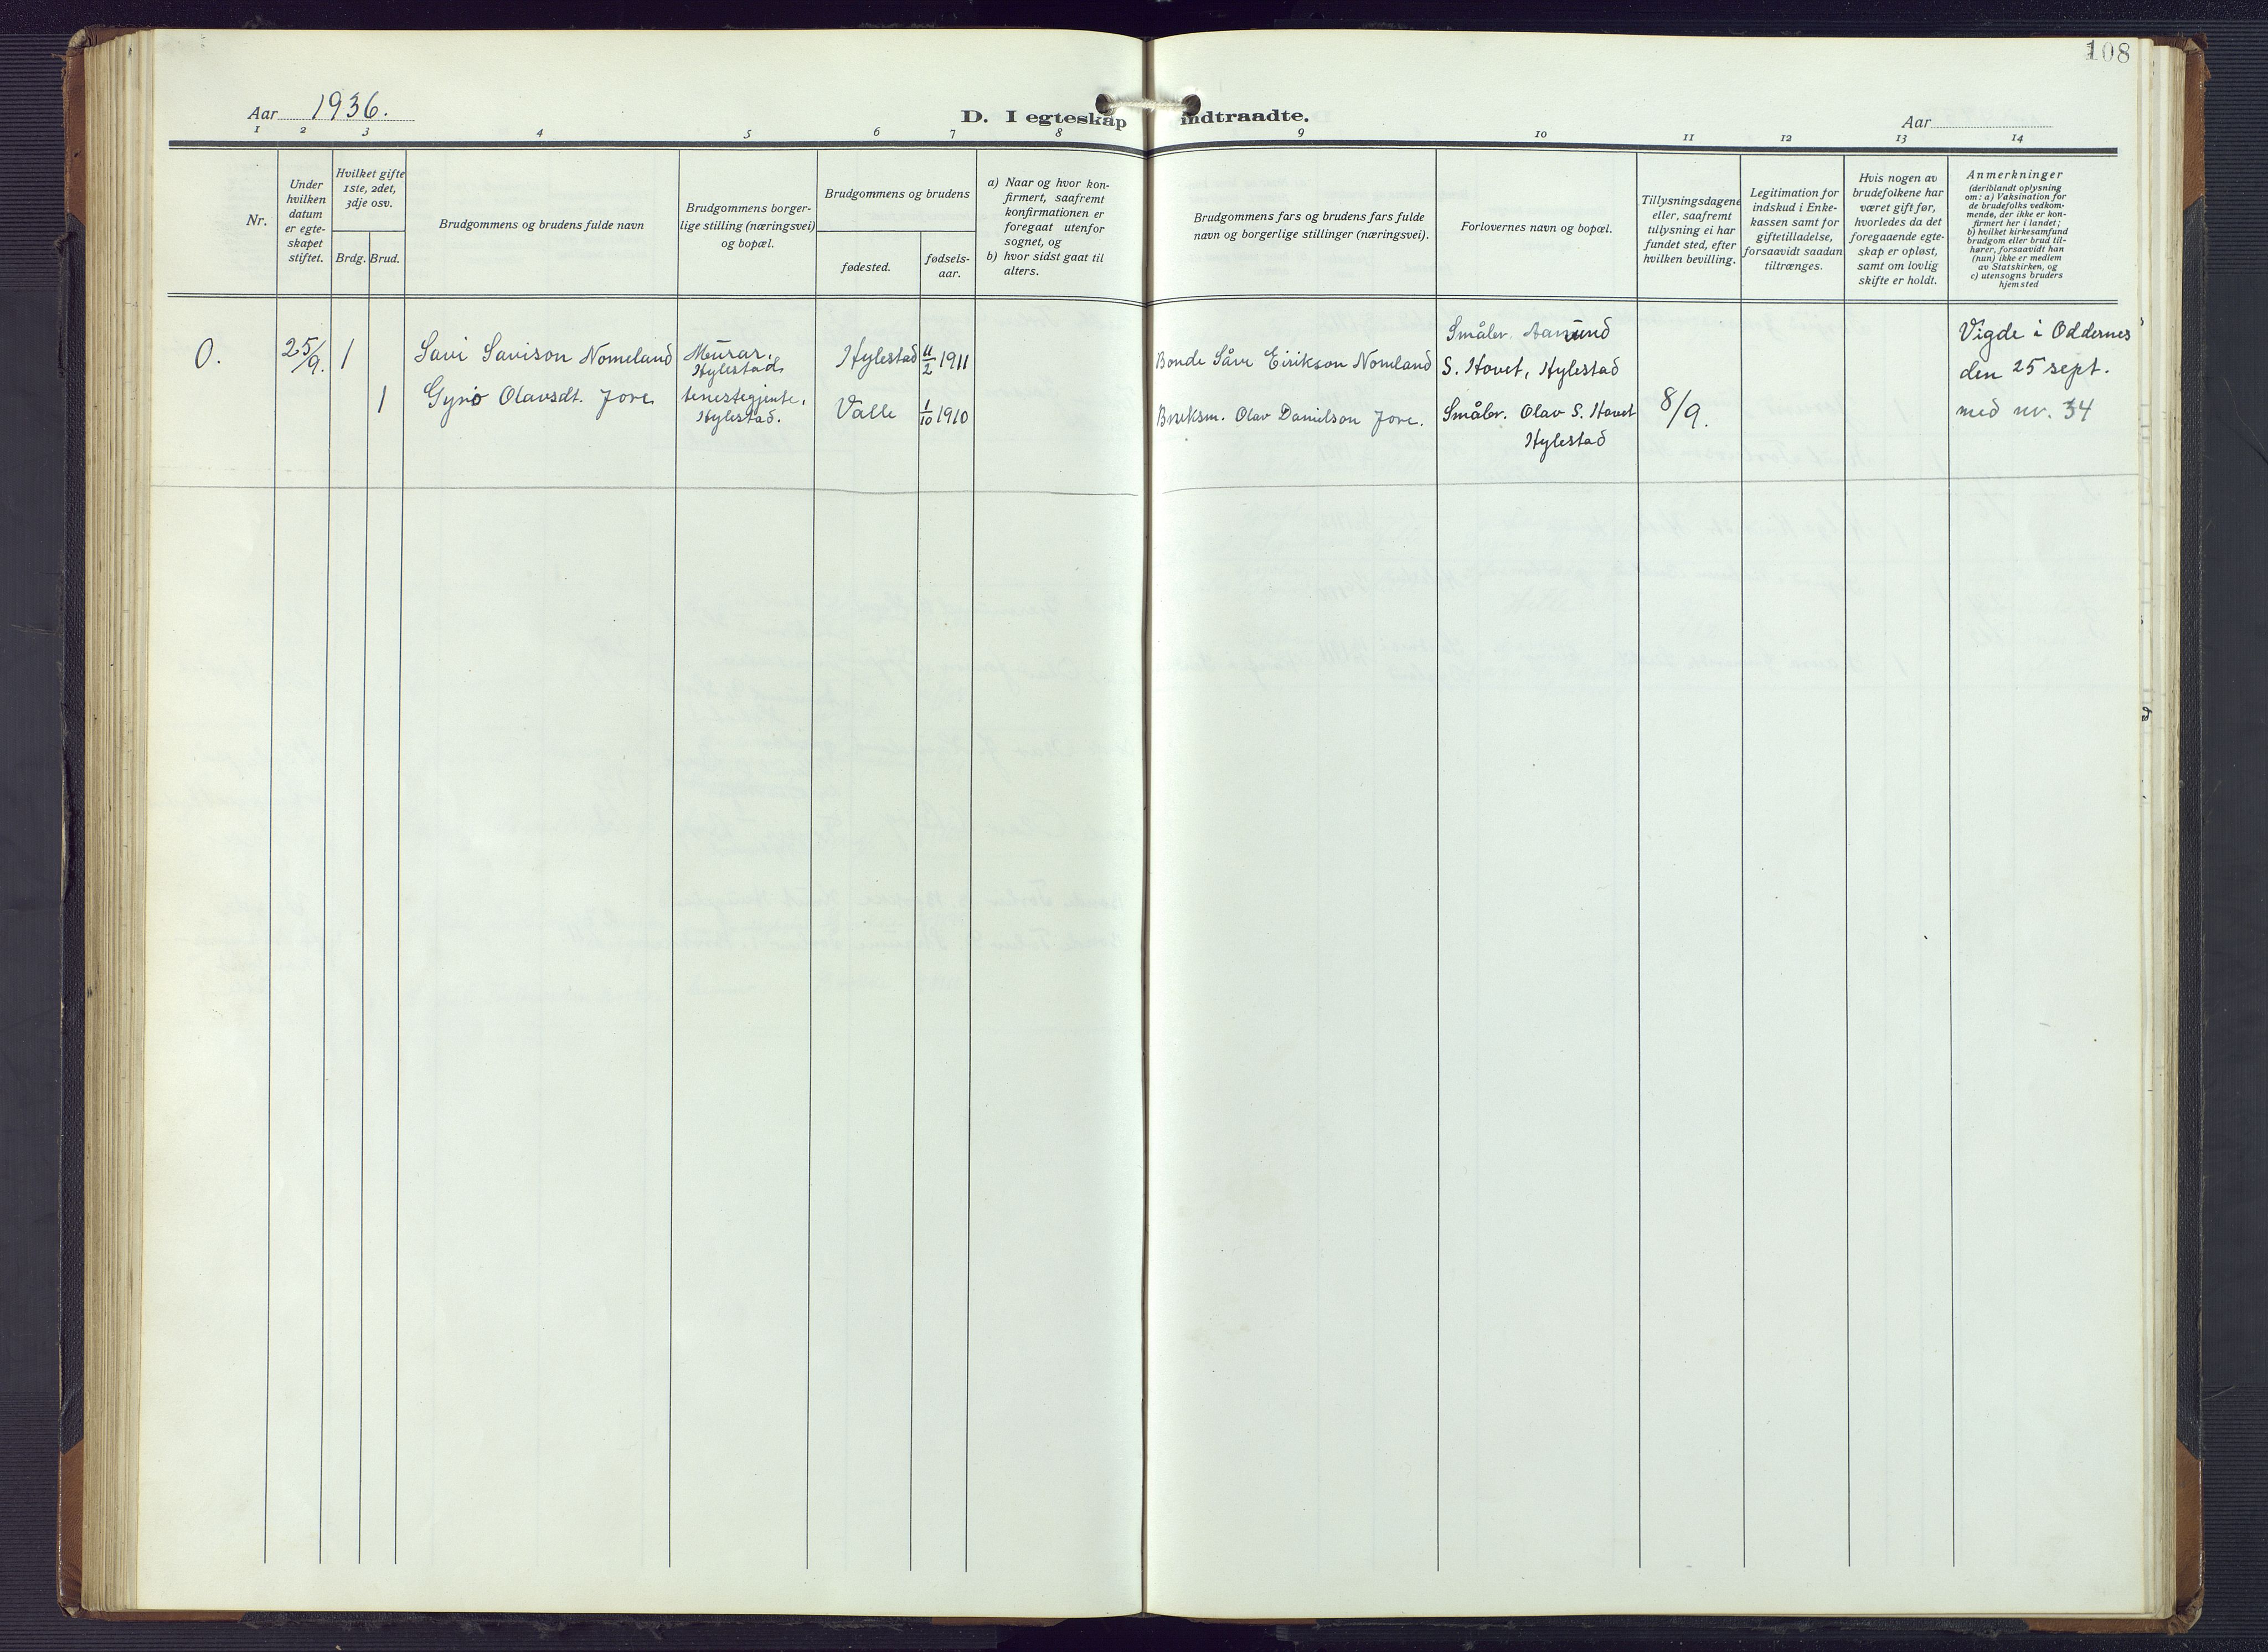 108
Aar 1936.
D. I egteskap indtraadte.
Aar
1 2 3 4 5 6 7 8 9 10 11 12 13 14
Nr.
Under
hvilken
datum
er egte-
skapet
stiftet.
Hvilket gifte
1ste, 2det,
3dje osv.
Brdg. Brud.
Brudgommens og brudens fulde navn
Brudgommens borger-
lige stilling (næringsvei)
og bopæl.
Brudgommens og brudens
fødested.
fødsels-
aar.
a) Naar og hvor kon-
firmert, saafremt
konfirmationen er
foregaat utenfor
sognet, og
b) hvor sidst gaat til
alters.
Brudgommens fars og brudens fars fulde
navn og borgerlige stillinger (næringsvei).
Forlovernes navn og bopæl.
Tillysningsdagene
eller, saafremt
tillysning ei har
fundet sted, efter
hvilken bevilling.
Legitimation for
indskud i Enke-
kassen samt for
giftetilladelse,
forsaavidt saadan
tiltrænges.
Hvis nogen av
brudefolkene har
været gift før,
hvorledes da det
foregaaende egte-
skap er opløst,
samt om lovlig
skifte er holdt.
Anmerkninger
(deriblandt oplysning
om: a) Vaksination for
de brudefolks vedkom-
mende, der ikke er kon-
firmert her i landet;
b) hvilket kirkesamfund
brudgom eller brud til-
hører, forsaavidt han
(hun) ikke er medlem
av Statskirken, og
c) utensogns bruders
hjemsted
0.
25/9.
1
Savi Savison Nomeland
Murar,
Hylestad
Hylestad
11/2 1911
Bonde Såvi Eirikson Nomeland
Småbr. Aamund
S. Hovet, Hylestad
1
Gyro Olavsdt. Jore
tenestegjente,
Hylestad.
Valle
1/10 1910
Bruksm. Olav Danielson Jore.
Småbr. Olav S. Hovet
Hylestad
8/9.
Vigde i Oddernes
den 25 sept.
med nr. 34